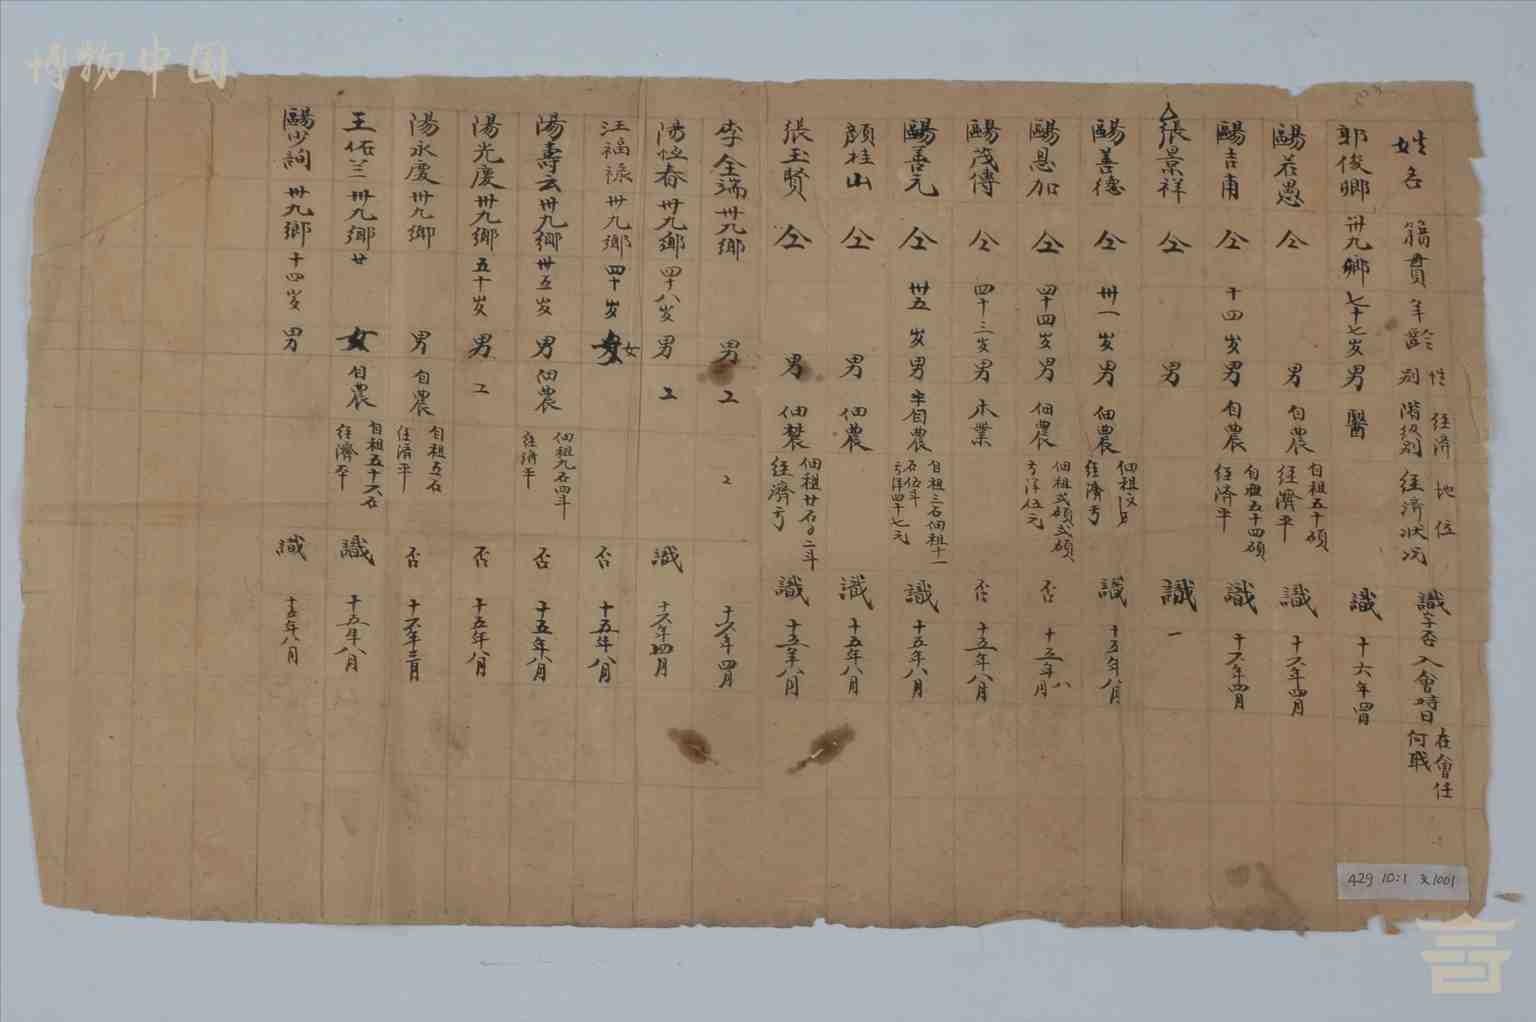 姓名 籍貫 年齡 性別 經濟地位 階級別 經濟狀况 識字否 入會時日 在會任何職
郭俊卿 卅九鄉 七十七岁 男 醫 識 十六年四月
歐若愚 仝 男 自農 自租五十碩 經濟平 識 十六年四月
歐吉甫 仝 十四岁 男 自農 自租五十四碩 經濟平 識 十六年四月
張景祥 仝 男 識 一
歐善德 仝 卅一岁 男 佃農 佃租 經濟亏 識 十五年八月
歐恩加 仝 四十四岁 男 佃農 佃租弍碩弍碩 亏洋伍元 否 十五年八月
歐茂傳 仝 四十三岁 男 木業 否 十五年八月
歐善元 仝 卅五岁 男 半自農 自租三石佃租十一石伍斗 亏洋四十七元 識 十五年八月
顔桂山 仝 男 佃農 識 十五年八月
張玉賢 仝 男 佃農 佃租廿石〇二斗 經濟亏 識 十五年八月
李全瑞 卅九鄉 男 工 十六年四月
陽恆春 卅九鄉 四十八岁 男 工 識 十六年四月
汪福祿 卅九鄉 四十岁 女 否 十五年八月
陽壽云 卅九鄉 卅五岁 男 佃農 佃租九石四斗 經濟平 否 十五年八月
陽光慶 卅九鄉 五十岁 男 工 否 十五年八月
陽永慶 卅九鄉 男 自農 自租五石 經濟平 否 十六年三月
王佑兰 卅九鄉 廿 女 自農 自租五十六石 經濟平 識 十五年八月
歐少詢 卅九鄉 十四岁 男 識 十五年八月
429 10:1 文1001
博物中国